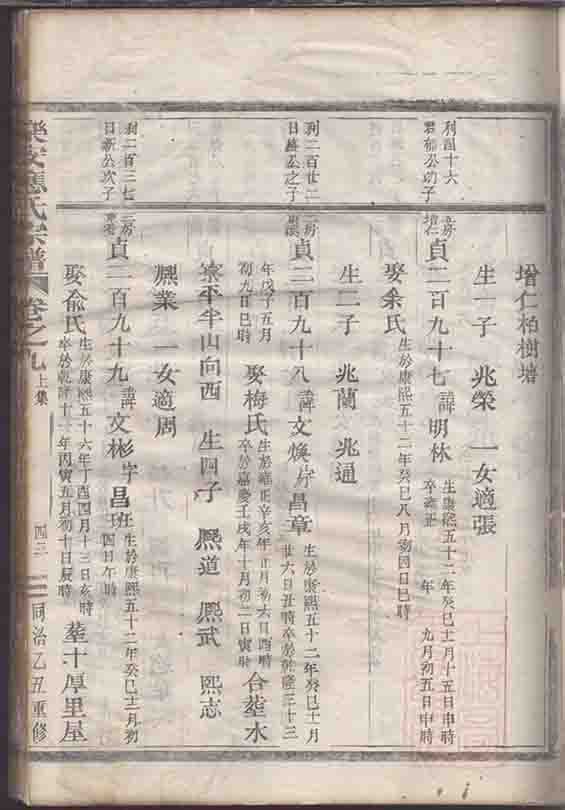 增仁柏樹塘
生一子 兆榮 一女適張
利四十六
君郁公幼子
房
增仁
貞二百九十七 諱明林
生康熙五十二年癸巳十一月十五日申時
卒雍正 年 九月初五日申時
娶余氏
生於康熙五十二年癸巳八月初四日巳時
生二子 兆蘭 兆通
利二百廿二
日 公之子
二房
貞二百九十八 諱文煥字昌章
生於康熙五十二年癸巳十一月
廿六日丑時卒於乾隆三十三
年戊子五月
初九日巳時
娶梅氏
生於雍正辛亥年正月初六日酉時
卒於嘉慶壬戌年十月初二日寅時
合塟水
寮平半山向西 生四子 熈道 熈武 熙志
熈業 一女適周
利二百三七
日新公次子
二房
貞二百九十九 諱文彬字昌班
生於康熙五十二年癸巳十一月初
四日午時
娶俞氏
生於康熙五十六年丁酉四月十三日亥時
卒於乾隆十一年丙寅五月初十日辰時
塟十厚里屋
樂安應氏宗譜 卷之九 上集 四三 同治乙丑重修